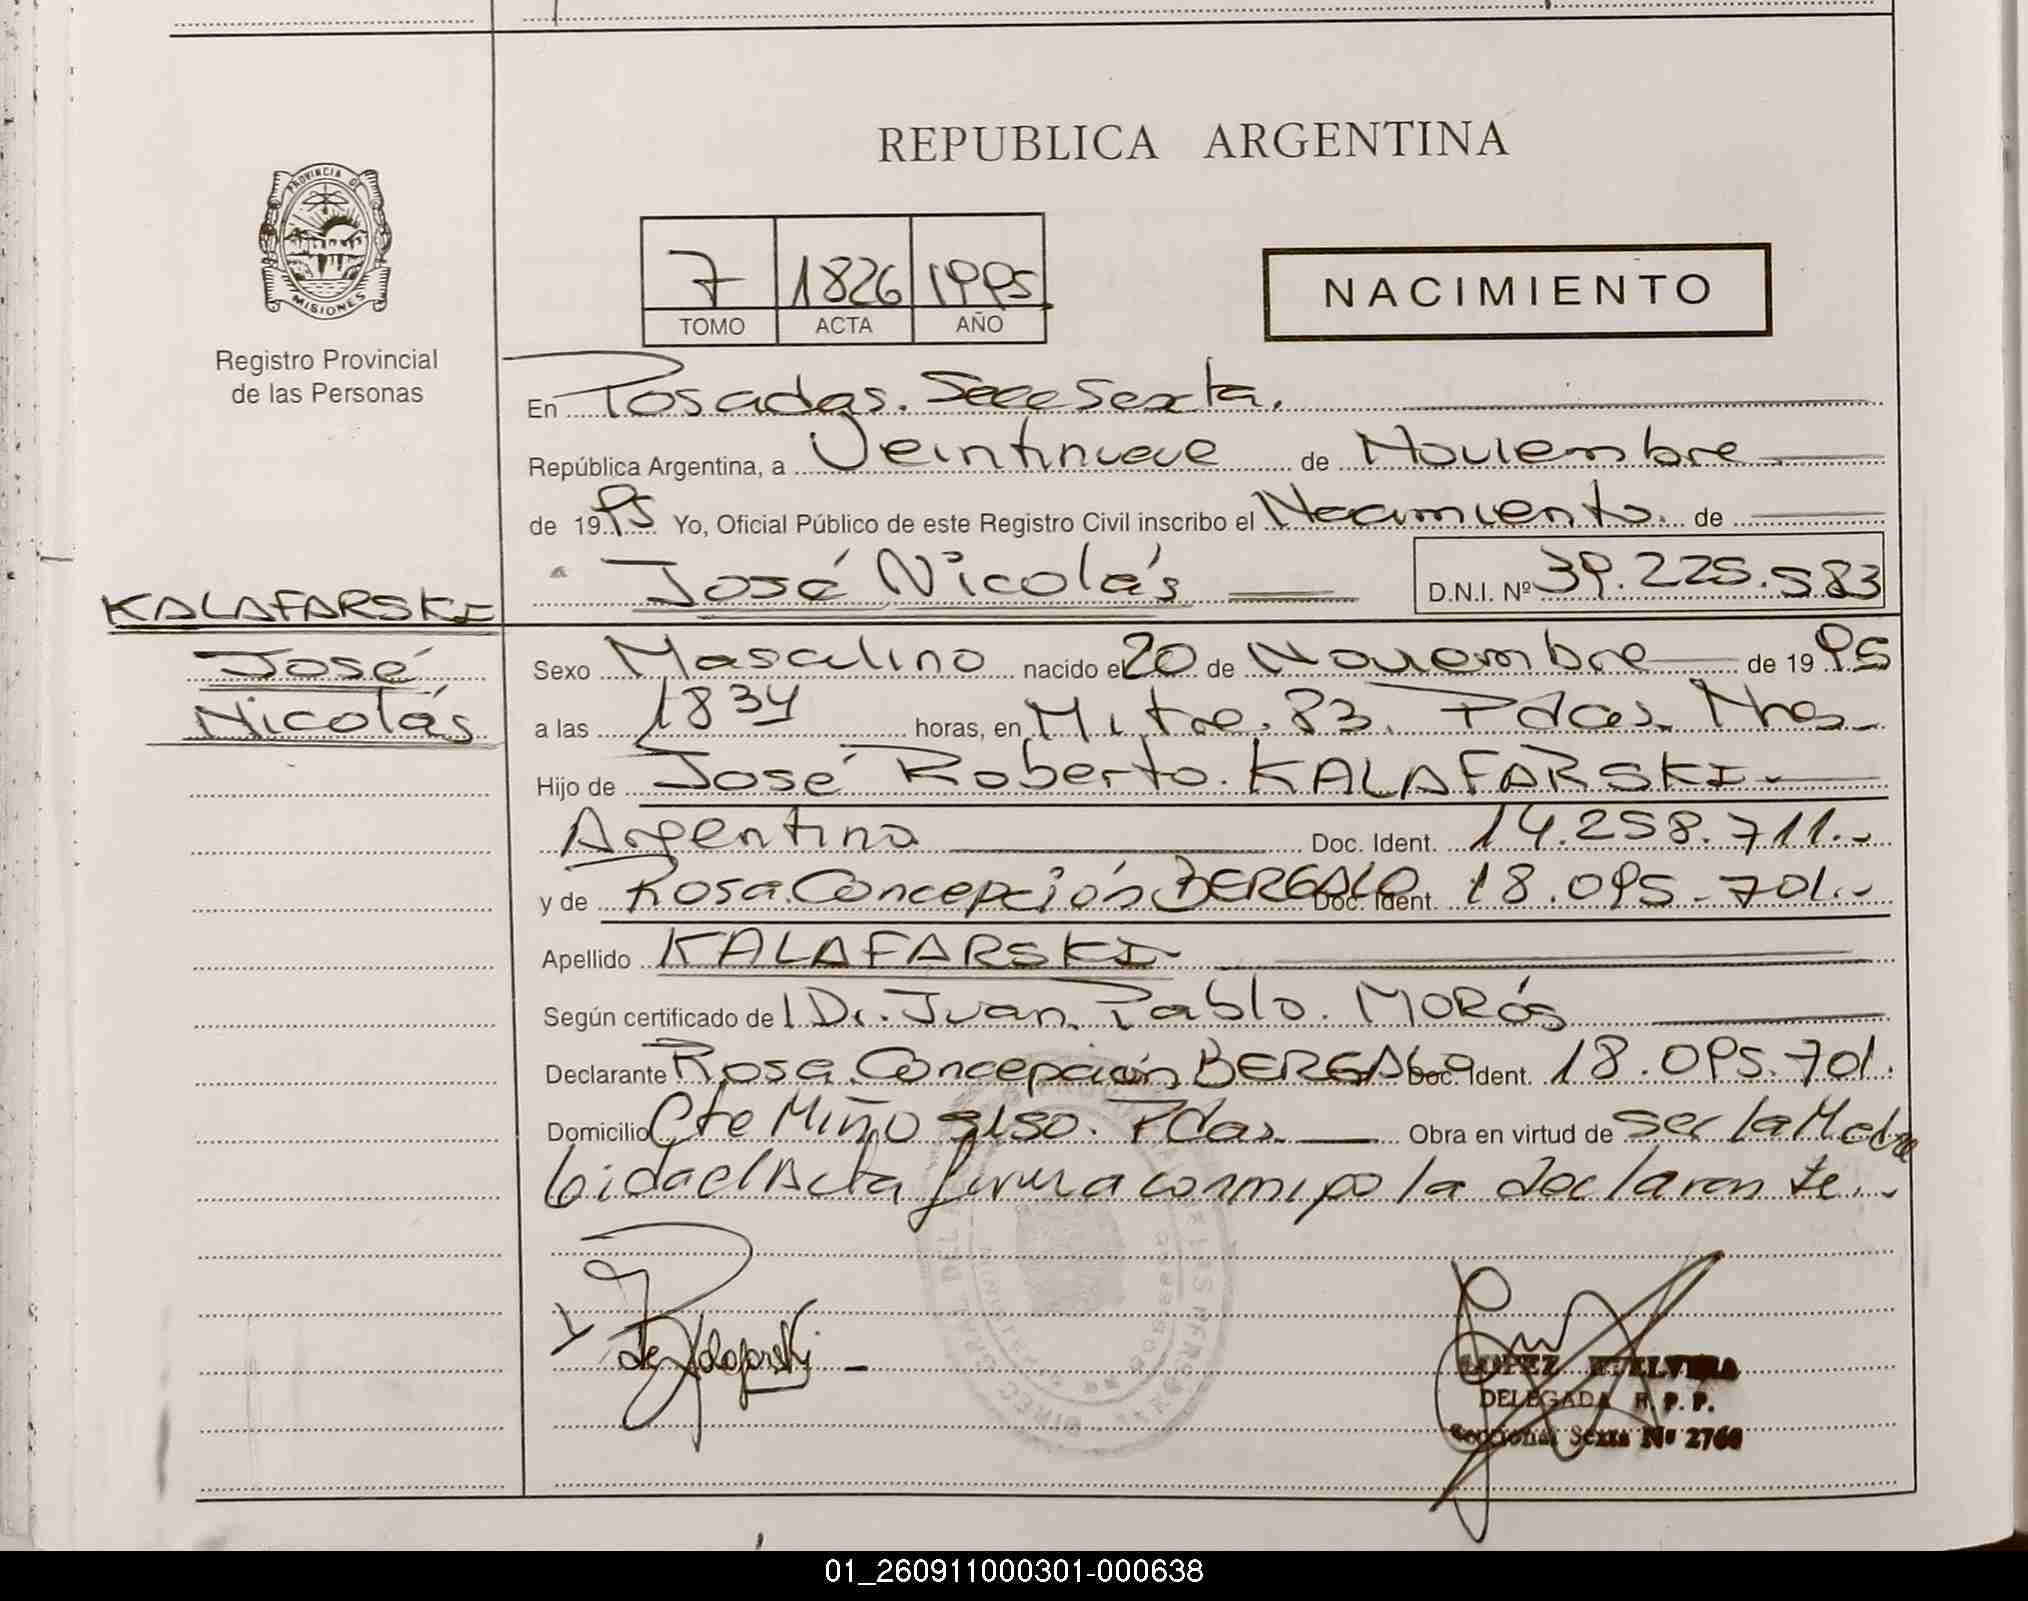 REPUBLICA ARGENTINA
PROVINCIA DE
MISIONES
Registro Provincial
de las Personas
7 1826 1995
TOMO ACTA AÑO
NACIMIENTO
En Posadas. Secc Sexta.
República Argentina, a Veintinueve de Noviembre
de 1995 Yo, Oficial Público de este Registro Civil inscribo el Nacimiento. de
José Nicolás D.N.I. Nº 39.225.583
KALAFARSKI
José
Nicolás
Sexo Masculino nacido el 20 de Noviembre de 1995
a las 1834 horas, en Mitre. 83. Pdas. Mnes.
Hijo de José Roberto. KALAFARSKI.
Argentino Doc. Ident. 14.258.711.-
y de Rosa Concepción BERGALO Doc. Ident. 18.095.701.-
Apellido KALAFARSKI.
Según certificado de l Dr. Juan Pablo. MORÓS
Declarante Rosa Concepción BERGALO Doc. Ident. 18.095.701.
Domicilio Cte Miño Pdas. Obra en virtud de ser la Madre
Leida el Acta firma conmigo la declarante.-
LOPEZ
DELEGADA R. P. P.
Seccional Sexta Nº 2760
01_260911000301-000638